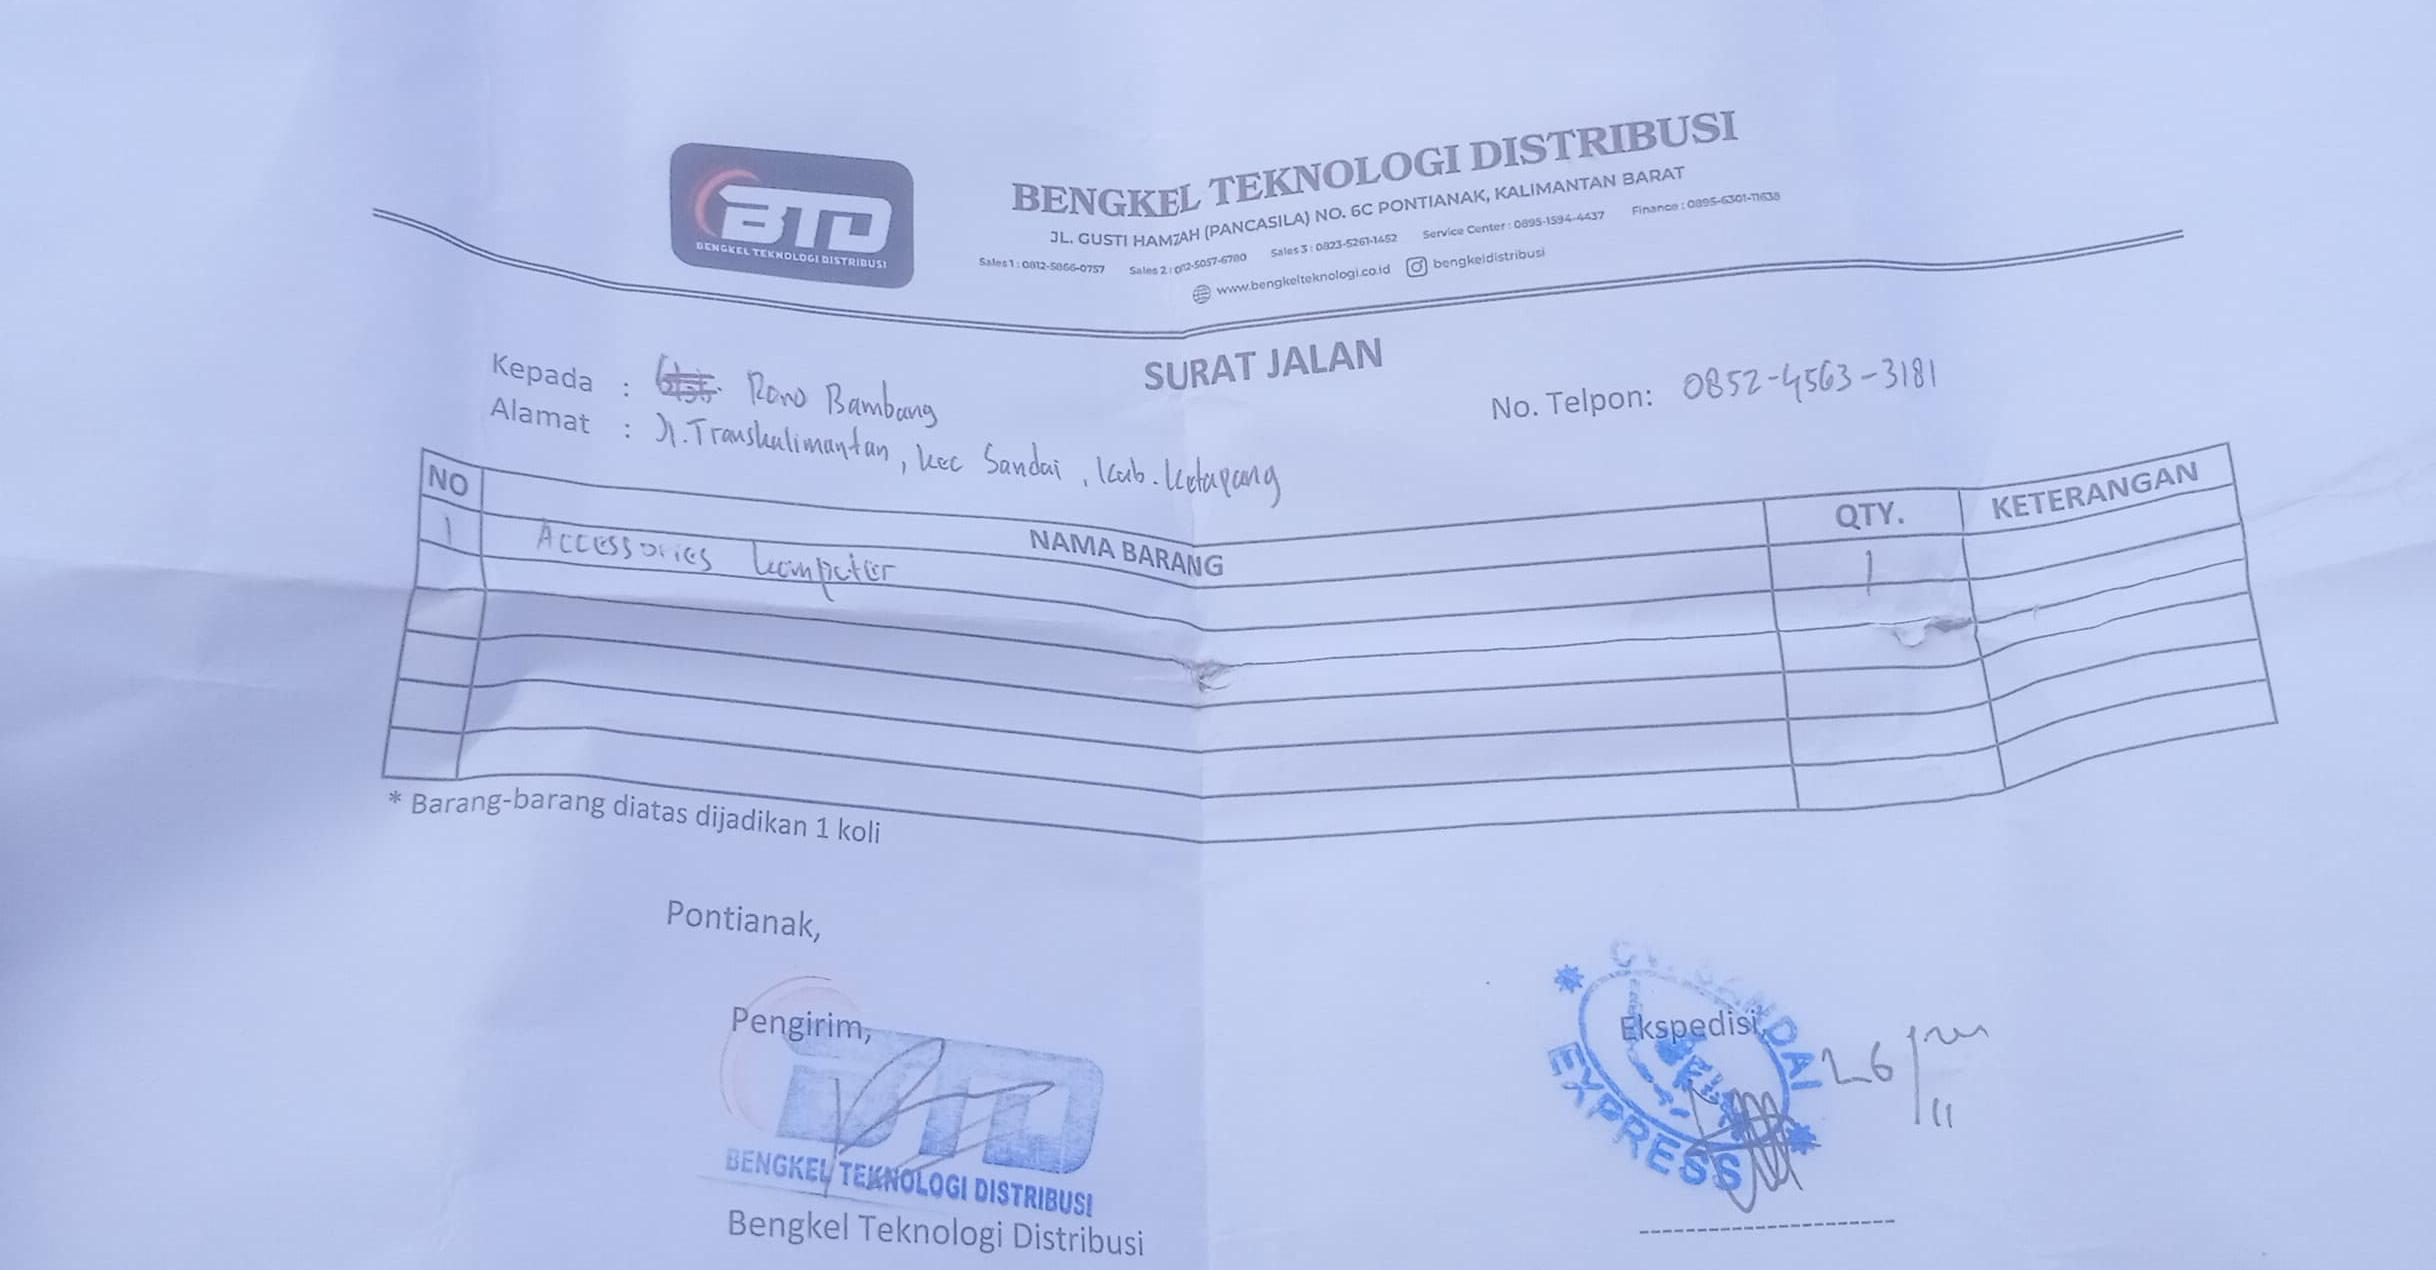 BTD
BENGKEL TEKNOLOGI DISTRIBUSI
BENGKEL TEKNOLOGI DISTRIBUSI
JL. GUSTI HAMZAH (PANCASILA) NO. 6C PONTIANAK, KALIMANTAN BARAT
Sales 1 : 0812-5866-0757 Sales 2 : 012-5057-6780 Sales 3 : 0823-5261-1452 Service Center : 0895-1594-4437 Finance : 0895-6301-11638
www.bengkelteknologi.co.id bengkeldistribusi
SURAT JALAN
Kepada : Rono Bambang
No. Telpon: 0852-4563-3181
Alamat : Jl. Transkalimantan, kec Sandai, Kab. Ketapang
NO NAMA BARANG QTY. KETERANGAN
1 Accessories komputer 1
* Barang-barang diatas dijadikan 1 koli
Pontianak,
Pengirim,
Ekspedisi,
BTD
BENGKEL TEKNOLOGI DISTRIBUSI
Bengkel Teknologi Distribusi
CV. SANDAI
EXPRESS
26/11